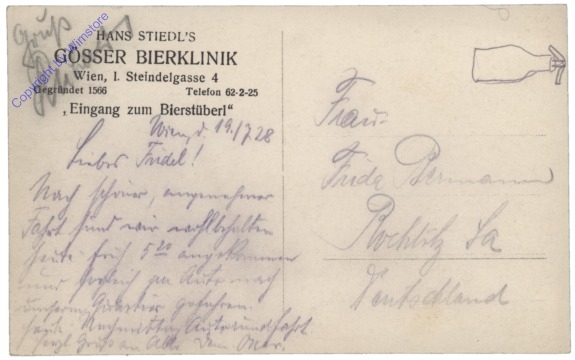 Gruß
HANS STIEDL'S
GÖSSER BIERKLINIK
Wien, I. Steindelgasse 4
Gegründet 1566 Telefon 62-2-25
„Eingang zum Bierstüberl"
Copyright by Wimstore
Wien, d. 19./7.28
Liebes Fridel!
Nach schöner, angenehmer
Fahrt sind wir wohlbehalten
heute früh 5 20 angekommen
und sogleich per Auto nach
unserem Quartier gefahren.
Heute Nachmittag Autorundfahrt.
Herzl. Gruß an Alle
Frau
Frida Bermann
Rochlitz Sa
Deutschland